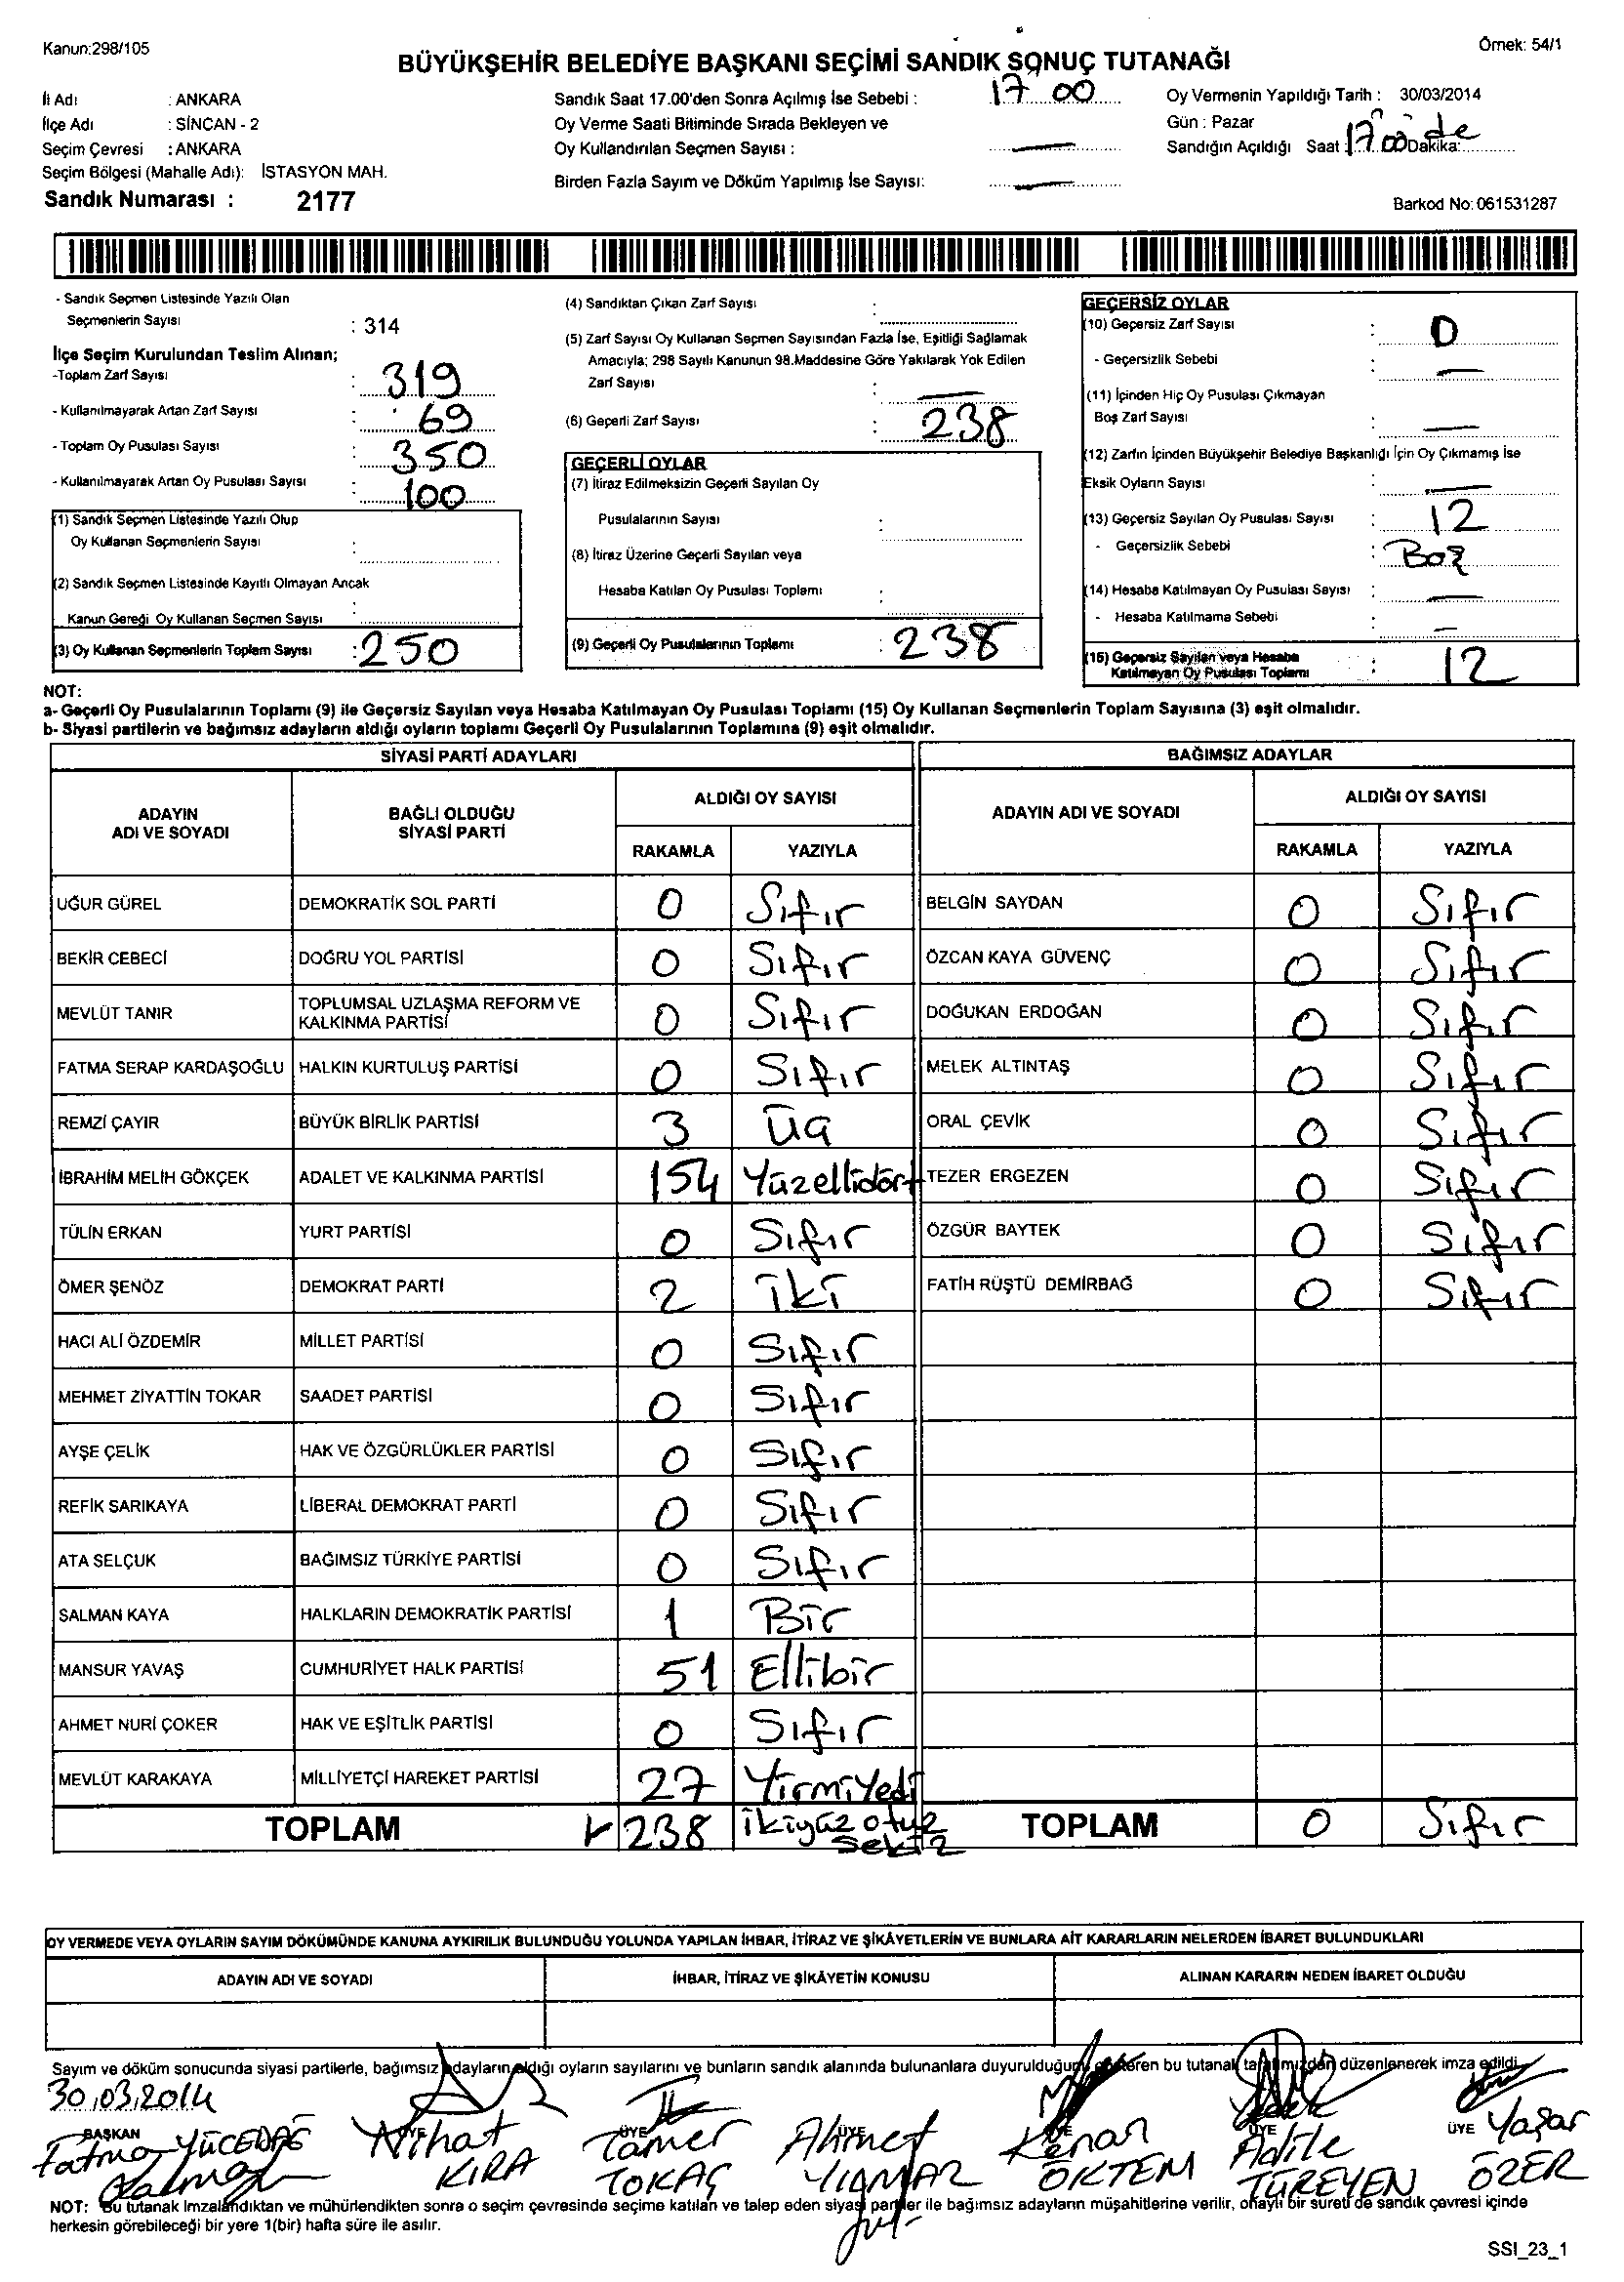 Kanun:298/105
Örnek: 54/1
BÜYÜKŞEHİR BELEDİYE BAŞKANI SEÇİMİ SANDIK SONUÇ TUTANAĞI
İl Adı : ANKARA
İlçe Adı : SİNCAN - 2
Seçim Çevresi : ANKARA
Seçim Bölgesi (Mahalle Adı): İSTASYON MAH.
Sandık Numarası : 2177
Sandık Saat 17.00'den Sonra Açılmış İse Sebebi : 17 00
Oy Verme Saati Bitiminde Sırada Bekleyen ve
Oy Kullandırılan Seçmen Sayısı : —
Birden Fazla Sayım ve Döküm Yapılmış İse Sayısı: —
Oy Vermenin Yapıldığı Tarih : 30/03/2014
Gün : Pazar
Sandığın Açıldığı Saat : 17 00 Dakika: de
Barkod No: 061531287
- Sandık Seçmen Listesinde Yazılı Olan
Seçmenlerin Sayısı : 314
İlçe Seçim Kurulundan Teslim Alınan;
-Toplam Zarf Sayısı : 319
- Kullanılmayarak Artan Zarf Sayısı : 69
- Toplam Oy Pusulası Sayısı : 350
- Kullanılmayarak Artan Oy Pusulası Sayısı : 100
(1) Sandık Seçmen Listesinde Yazılı Olup
Oy Kullanan Seçmenlerin Sayısı :
(2) Sandık Seçmen Listesinde Kayıtlı Olmayan Ancak
Kanun Gereği Oy Kullanan Seçmen Sayısı :
(3) Oy Kullanan Seçmenlerin Toplam Sayısı : 250
(4) Sandıktan Çıkan Zarf Sayısı :
(5) Zarf Sayısı Oy Kullanan Seçmen Sayısından Fazla İse, Eşitliği Sağlamak
Amacıyla; 298 Sayılı Kanunun 98.Maddesine Göre Yakılarak Yok Edilen
Zarf Sayısı : —
(6) Geçerli Zarf Sayısı : 238
GEÇERLİ OYLAR
(7) İtiraz Edilmeksizin Geçerli Sayılan Oy
Pusulalarının Sayısı :
(8) İtiraz Üzerine Geçerli Sayılan veya
Hesaba Katılan Oy Pusulası Toplamı :
(9) Geçerli Oy Pusulalarının Toplamı : 238
GEÇERSİZ OYLAR
(10) Geçersiz Zarf Sayısı : 0
- Geçersizlik Sebebi : —
(11) İçinden Hiç Oy Pusulası Çıkmayan
Boş Zarf Sayısı : —
(12) Zarfın İçinden Büyükşehir Belediye Başkanlığı İçin Oy Çıkmamış İse
Eksik Oyların Sayısı : —
(13) Geçersiz Sayılan Oy Pusulası Sayısı : 12
- Geçersizlik Sebebi : Boş
(14) Hesaba Katılmayan Oy Pusulası Sayısı : —
- Hesaba Katılmama Sebebi : —
(15) Geçersiz Sayılan veya Hesaba
Katılmayan Oy Pusulası Toplamı : 12
NOT:
a- Geçerli Oy Pusulalarının Toplamı (9) ile Geçersiz Sayılan veya Hesaba Katılmayan Oy Pusulası Toplamı (15) Oy Kullanan Seçmenlerin Toplam Sayısına (3) eşit olmalıdır.
b- Siyasi partilerin ve bağımsız adayların aldığı oyların toplamı Geçerli Oy Pusulalarının Toplamına (9) eşit olmalıdır.
SİYASİ PARTİ ADAYLARI
ADAYIN ADI VE SOYADI BAĞLI OLDUĞU SİYASİ PARTİ ALDIĞI OY SAYISI
RAKAMLA YAZIYLA
UĞUR GÜREL DEMOKRATİK SOL PARTİ 0 Sıfır
BEKİR CEBECİ DOĞRU YOL PARTİSİ 0 Sıfır
MEVLÜT TANIR TOPLUMSAL UZLAŞMA REFORM VE KALKINMA PARTİSİ 0 Sıfır
FATMA SERAP KARDAŞOĞLU HALKIN KURTULUŞ PARTİSİ 0 Sıfır
REMZİ ÇAYIR BÜYÜK BİRLİK PARTİSİ 3 Üç
İBRAHİM MELİH GÖKÇEK ADALET VE KALKINMA PARTİSİ 154 Yüzellidört
TÜLİN ERKAN YURT PARTİSİ 0 Sıfır
ÖMER ŞENÖZ DEMOKRAT PARTİ 2 iki
HACI ALİ ÖZDEMİR MİLLET PARTİSİ 0 Sıfır
MEHMET ZİYATTİN TOKAR SAADET PARTİSİ 0 Sıfır
AYŞE ÇELİK HAK VE ÖZGÜRLÜKLER PARTİSİ 0 Sıfır
REFİK SARIKAYA LİBERAL DEMOKRAT PARTİ 0 Sıfır
ATA SELÇUK BAĞIMSIZ TÜRKİYE PARTİSİ 0 Sıfır
SALMAN KAYA HALKLARIN DEMOKRATİK PARTİSİ 1 Bir
MANSUR YAVAŞ CUMHURİYET HALK PARTİSİ 51 Ellibir
AHMET NURİ ÇOKER HAK VE EŞİTLİK PARTİSİ 0 Sıfır
MEVLÜT KARAKAYA MİLLİYETÇİ HAREKET PARTİSİ 27 Yirmiyedi
TOPLAM 238 ikiyüz otuz sekiz
BAĞIMSIZ ADAYLAR
ADAYIN ADI VE SOYADI ALDIĞI OY SAYISI
RAKAMLA YAZIYLA
BELGİN SAYDAN 0 Sıfır
ÖZCAN KAYA GÜVENÇ 0 Sıfır
DOĞUKAN ERDOĞAN 0 Sıfır
MELEK ALTINTAŞ 0 Sıfır
ORAL ÇEVİK 0 Sıfır
TEZER ERGEZEN 0 Sıfır
ÖZGÜR BAYTEK 0 Sıfır
FATİH RÜŞTÜ DEMİRBAĞ 0 Sıfır
TOPLAM 0 Sıfır
OY VERMEDE VEYA OYLARIN SAYIM DÖKÜMÜNDE KANUNA AYKIRILIK BULUNDUĞU YOLUNDA YAPILAN İHBAR, İTİRAZ VE ŞİKÂYETLERİN VE BUNLARA AİT KARARLARIN NELERDEN İBARET BULUNDUKLARI
ADAYIN ADI VE SOYADI İHBAR, İTİRAZ VE ŞİKÂYETİN KONUSU ALINAN KARARIN NEDEN İBARET OLDUĞU
Sayım ve döküm sonucunda siyasi partilerle, bağımsız adayların aldığı oyların sayılarını ve bunların sandık alanında bulunanlara duyurulduğunu gösteren bu tutanak tarafımızdan düzenlenerek imza edildi.
30.03.2014
BAŞKAN ÜYE ÜYE ÜYE ÜYE ÜYE ÜYE
Fatma YÜCEDAĞ Nihat KIRA Tamer TOKAÇ Ahmet YILMAZ Kenan ÖKTEM Adile TÜREYEN Yaşar ÖZER
NOT: Bu tutanak imzalandıktan ve mühürlendikten sonra o seçim çevresinde seçime katılan ve talep eden siyasi partiler ile bağımsız adayların müşahitlerine verilir, onaylı bir sureti de sandık çevresi içinde
herkesin görebileceği bir yere 1(bir) hafta süre ile asılır.
SSI_23_1